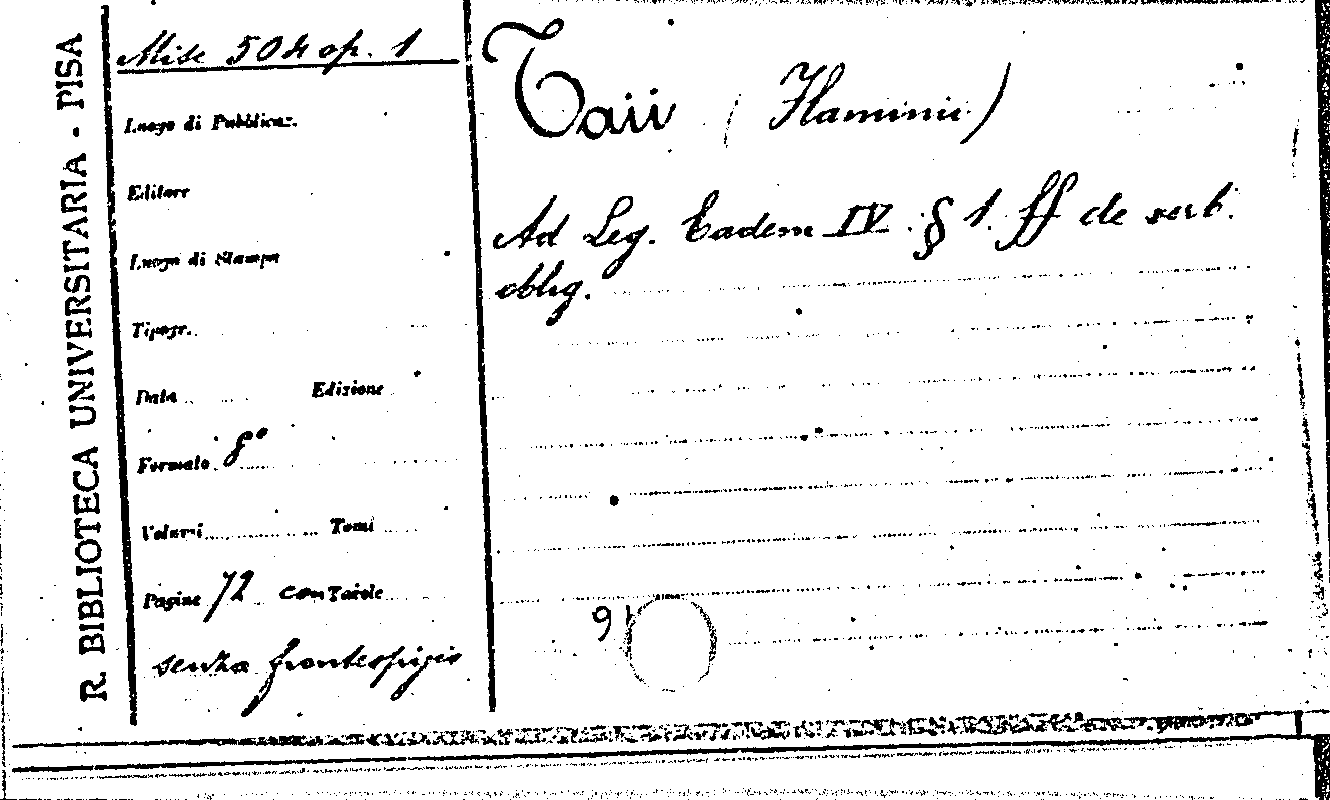 R. BIBLIOTECA UNIVERSITARIA - PISA
Misc 504 op. 1
Luogo di Pubblicaz.
Editore
Luogo di Stampa
Tipogr.
Data Edizione
Formato 8°
Volumi Tomi
Pagine 72 con Tavole
senza frontespizio
Taii (Flaminii)
Ad Leg. Eadem IV. § 1. ff de verb.
oblig.
91